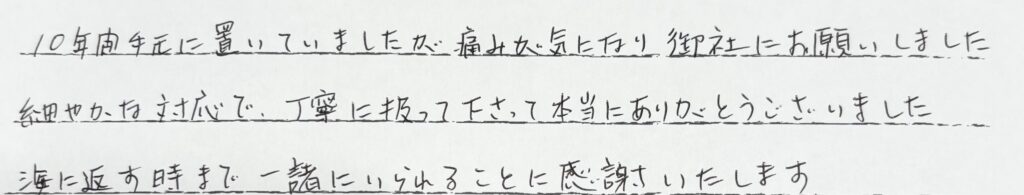 10年間手元に置いていましたが痛みが気になり御社にお願いしました
細やかな対応で、丁寧に扱って下さって本当にありがとうございました
海に返す時まで一諸にいられることに感謝いたします